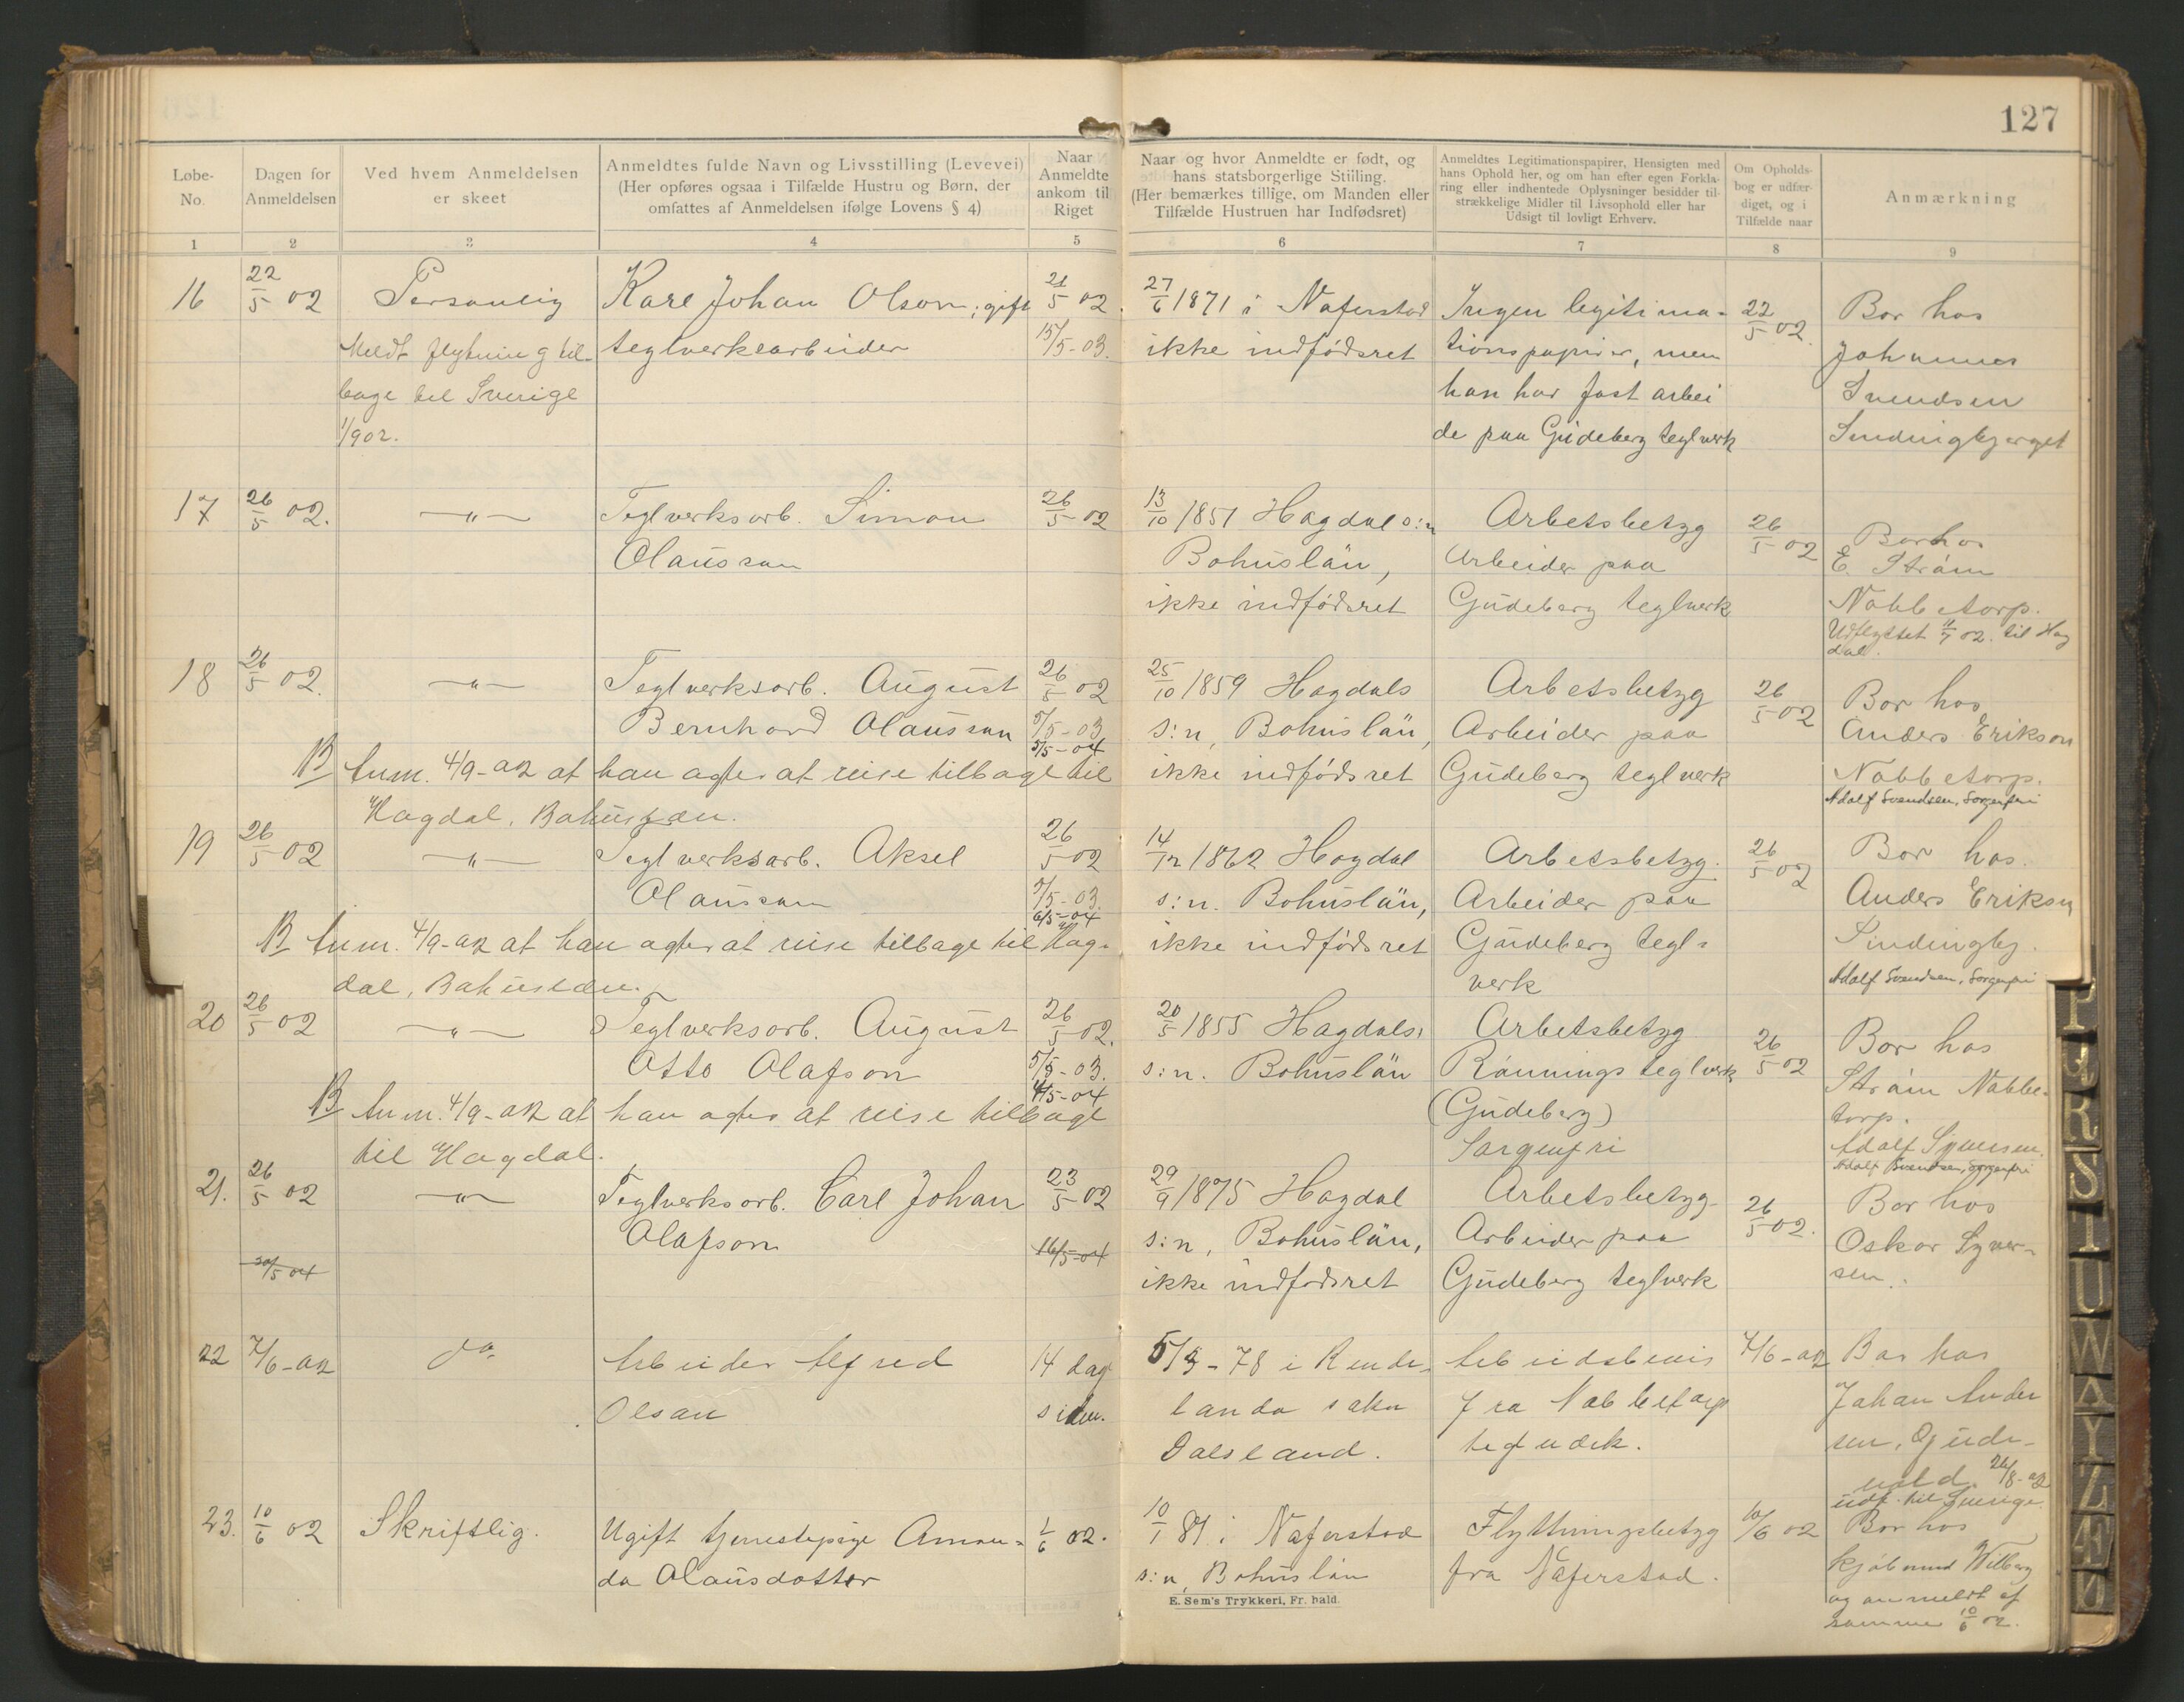 127
Løbe-
No.
Dagen for
Anmeldelsen
Ved hvem Anmeldelsen
er skeet
Anmeldtes fulde Navn og Livsstilling (Levevei)
(Her opføres ogsaa i Tilfælde Hustru og Børn, der
omfattes af Anmeldelsen ifølge Lovens § 4)
Naar
Anmeldte
ankom til
Riget
Naar og hvor Anmeldte er født, og
hans statsborgerlige Stilling.
(Her bemærkes tillige, om Manden eller
Tilfælde Hustruen har Indfødsret)
Anmeldtes Legitimationspapirer, Hensigten med
hans Ophold her, og om han efter egen Forkla-
ring eller indhentede Oplysninger besidder til-
strækkelige Midler til Livsophold eller har
Udsigt til lovligt Erhverv.
Om Opholds-
bog er udfær-
diget, og i
Tilfælde naar
Anmærkning
1 2 3 4 5 6 7 8 9
16
22/5 02
Personlig
Meldt flytning til-
bage til Sverige
1/9 02.
Karl Johan Olson, gift
teglverksarbeider
21/5 02.
15/5-03.
27/6 1871 i Naferstad
ikke indfødsret
Ingen legitima-
tionspapirer, men
han har fast arbei
de paa Gudeberg teglverk
22/5 02.
Bor hos
Johannes
Svendsen
17
26/5 02.
—„—
Teglverksarb. Simon
Olausson
26/5 02
13/10 1851 Hogdal s:n
Bohuslän,
ikke indfødsret
Arbetsbetyg
Arbeider paa
Gudeberg teglverk
26/5 02
Bor hos
E. Strøm
Nabbetorp.
Udflyttet 11/7 02. til Hog
dal.
18
26/5 02.
—„—
Teglverksarb. August
Bernhard Olausson
26/5 02
5/5-03
5/5-04
B Anm. 4/9-02 at han agter at reise tilbage til
Hogdal, Bohuslæn.
25/10 1859 Hogdals
s:n, Bohuslän,
ikke indfødsret
Arbetsbetyg
Arbeider paa
Gudeberg teglverk
26/5 02
Bor hos
Anders Erikson
Nabbetorp.
Adolf Svendsen, Sorgenfri
19
26/5 02
—„—
Teglverksarb. Aksel
Olausson
26/5 02
5/5-03.
6/5-04
B Anm. 4/9-02 at han agter at reise tilbage til Hog-
dal, Bohuslæn.
14/12 1862 Hogdal
s:n. Bohuslän,
ikke indfødsret
Arbetsbetyg.
Arbeider paa
Gudeberg tegl-
verk
26/5 02
Bor hos.
Anders Erikson
Adolf Svendsen, Sorgenfri
20
26/5 02
—„—
Teglverksarb. August
Otto Olafson
26/5 02.
5/5-03.
4/5-04
B Anm. 4/9-02 at han agter at reise tilbage
til Hogdal.
20/5 1855 Hogdals
s:n. Bohuslän
Arbetsbetyg
Rønnings teglverk
(Gudeberg)
Sorgenfri
26/5 02
Bor hos
Strøm Nabbe-
torp.
Adolf Svendsen, Sorgenfri
21.
26/5 02
20/5 04
—„—
Teglverksarb. Carl Johan
Olafson
23/5 02
16/5-04
29/9 1875 Hogdal
s:n, Bohuslän,
ikke indfødsret
Arbetsbetyg
Arbeider paa
Gudeberg teglverk
26/5 02.
Bor hos
Oskar Syver-
sen.
22
7/6-02
do
Arbeider Alfred
Olsen
14 dag
siden.
Dalsland.
Arbeidsbevis
fra Nabbetorp
7/6-02
Bor hos
Johan Ander
sen, Gude-
udf. til Sverige.
23.
10/6 02
Skriftlig.
Ugift tjenestepige Aman-
da Olausdotter
1/6 02.
10/1 81 i Naferstad
s:n, Bohuslän
Flyttningsbetyg
fra Naferstad.
10/6 02
Bor hos
kjøbmand Wilberg
og anmeldt af
samme 10/6 02.
E. Sem's Trykkeri, Fr. hald.
P
Q
R
S
T
U
W
Y
Z
Æ
Ø